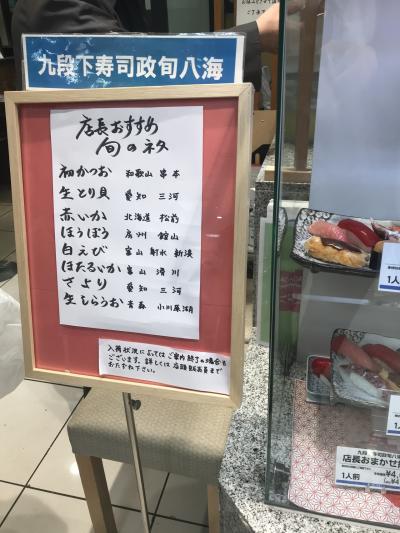 九段下寿司政旬八海
店長おすすめ
旬のネタ
初かつお 和歌山 串本
生とり貝 愛知 三河
赤いか 北海道 松前
ほうぼう 房州 館山
白えび 富山 射水 新湊
ほたるいか 富山 滑川
さより 愛知 三河
生しらうお 青森 小川原湖
入荷状況によってはご案内終了の場合も
ございます。詳しくは店頭販売員まで
おたずね下さい。
1人
1人
店長おまかせ
1人前